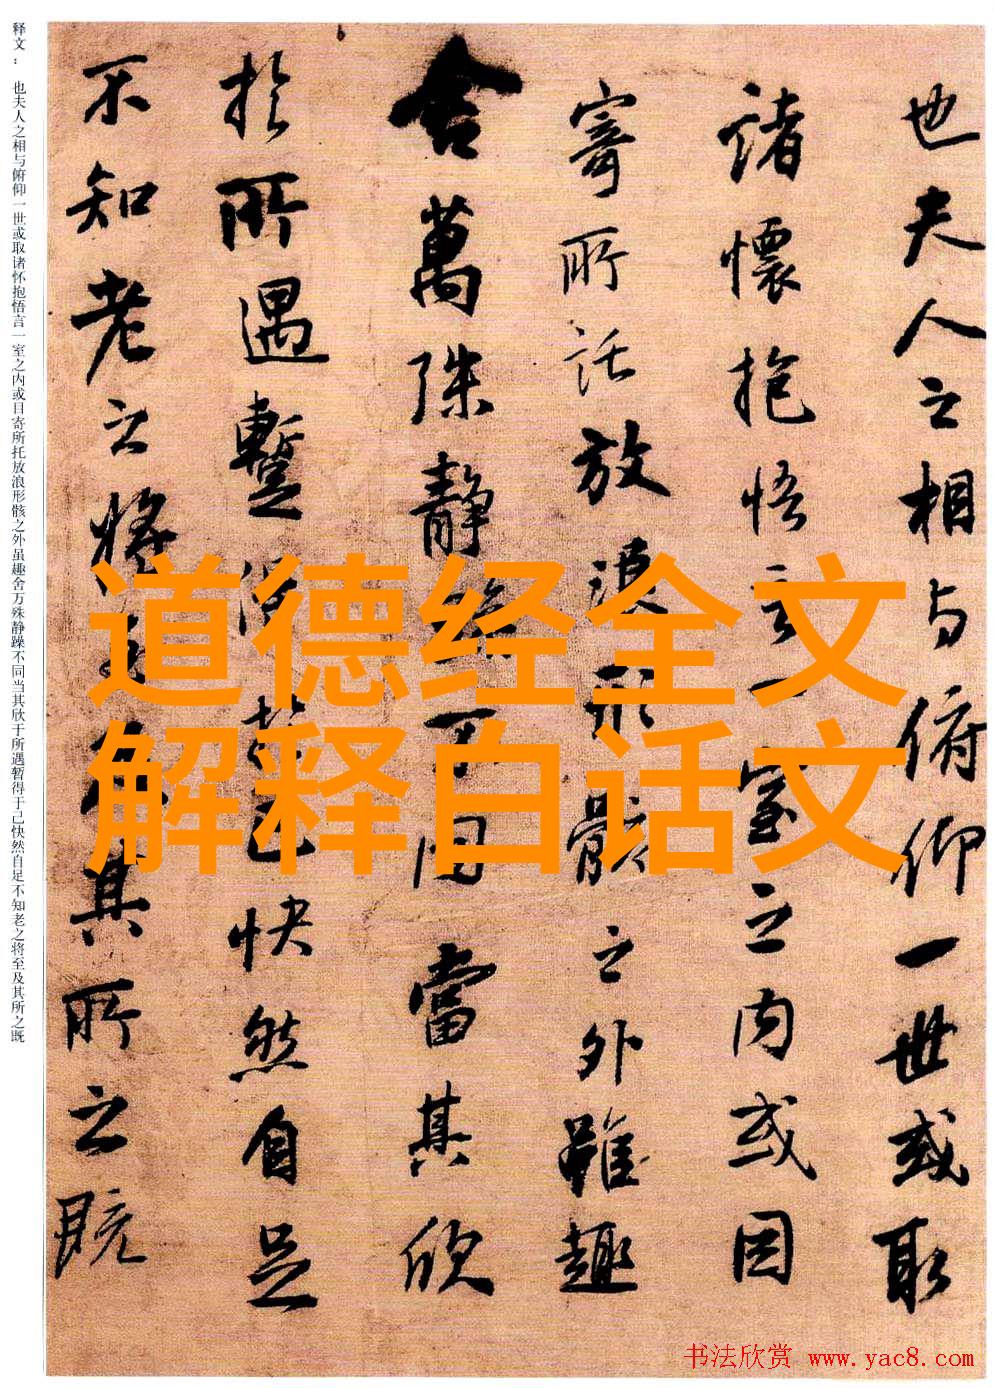 释文：也夫人之相与俯仰一世或取诸怀抱悟言一室之内或目寄所托放浪形骸之外虽趣舍万殊静躁不同当其欣于所遇暂得于己快然自足不知老之将至及其所之既
也夫人之相与俯仰一世或取
諸懷抱悟言一室之内或因
寄所託放浪形骸之外雖趣
舍萬殊静躁不同當其欣
於所遇蹔得於己快然自足
不知老之将至及其所之既
道德经全文
解释白话文
书法欣赏 www.yac8.com